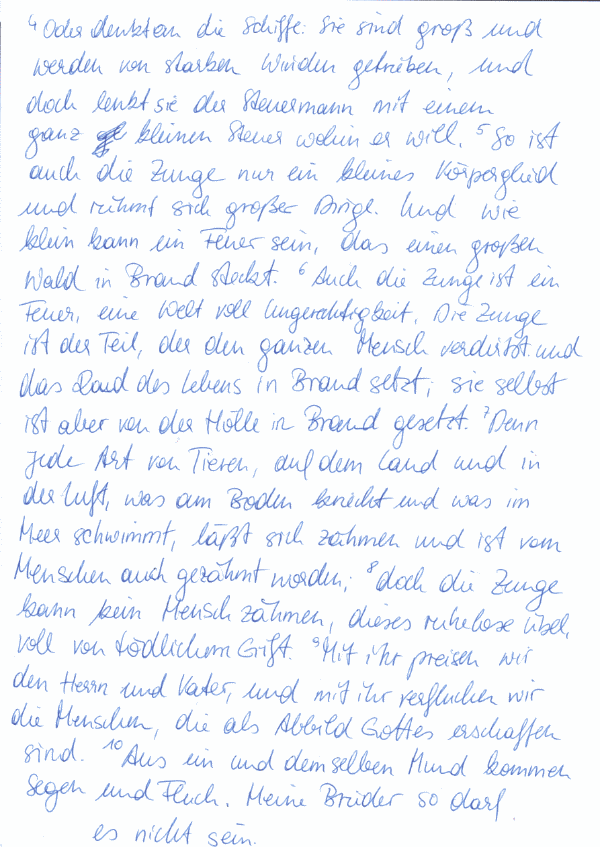 ⁴ Oder denkt an die Schiffe: sie sind groß und
werden von starken Winden getrieben, und
doch lenkt sie der Steuermann mit einem
ganz kleinen Steuer wohin er will. ⁵ So ist
auch die Zunge nur ein kleines Körperglied
und rühmt sich großer Dinge. Und wie
klein kann ein Feuer sein, das einen großen
Wald in Brand steckt. ⁶ Auch die Zunge ist ein
Feuer, eine Welt voll Ungerechtigkeit. Die Zunge
ist der Teil, der den ganzen Mensch verdirbt und
das Rad des Lebens in Brand setzt; sie selbst
ist aber von der Hölle in Brand gesetzt. ⁷ Denn
jede Art von Tieren, auf dem Land und in
der Luft, was am Boden kriecht und was im
Meer schwimmt, läßt sich zähmen und ist vom
Menschen auch gezähmt worden; ⁸ doch die Zunge
kann kein Mensch zähmen, dieses ruhelose Übel,
voll von tödlichem Gift. ⁹ Mit ihr preisen wir
den Herrn und Vater, und mit ihr verfluchen wir
die Menschen, die als Abbild Gottes erschaffen
sind. ¹⁰ Aus ein und demselben Mund kommen
Segen und Fluch. Meine Brüder so darf
es nicht sein.